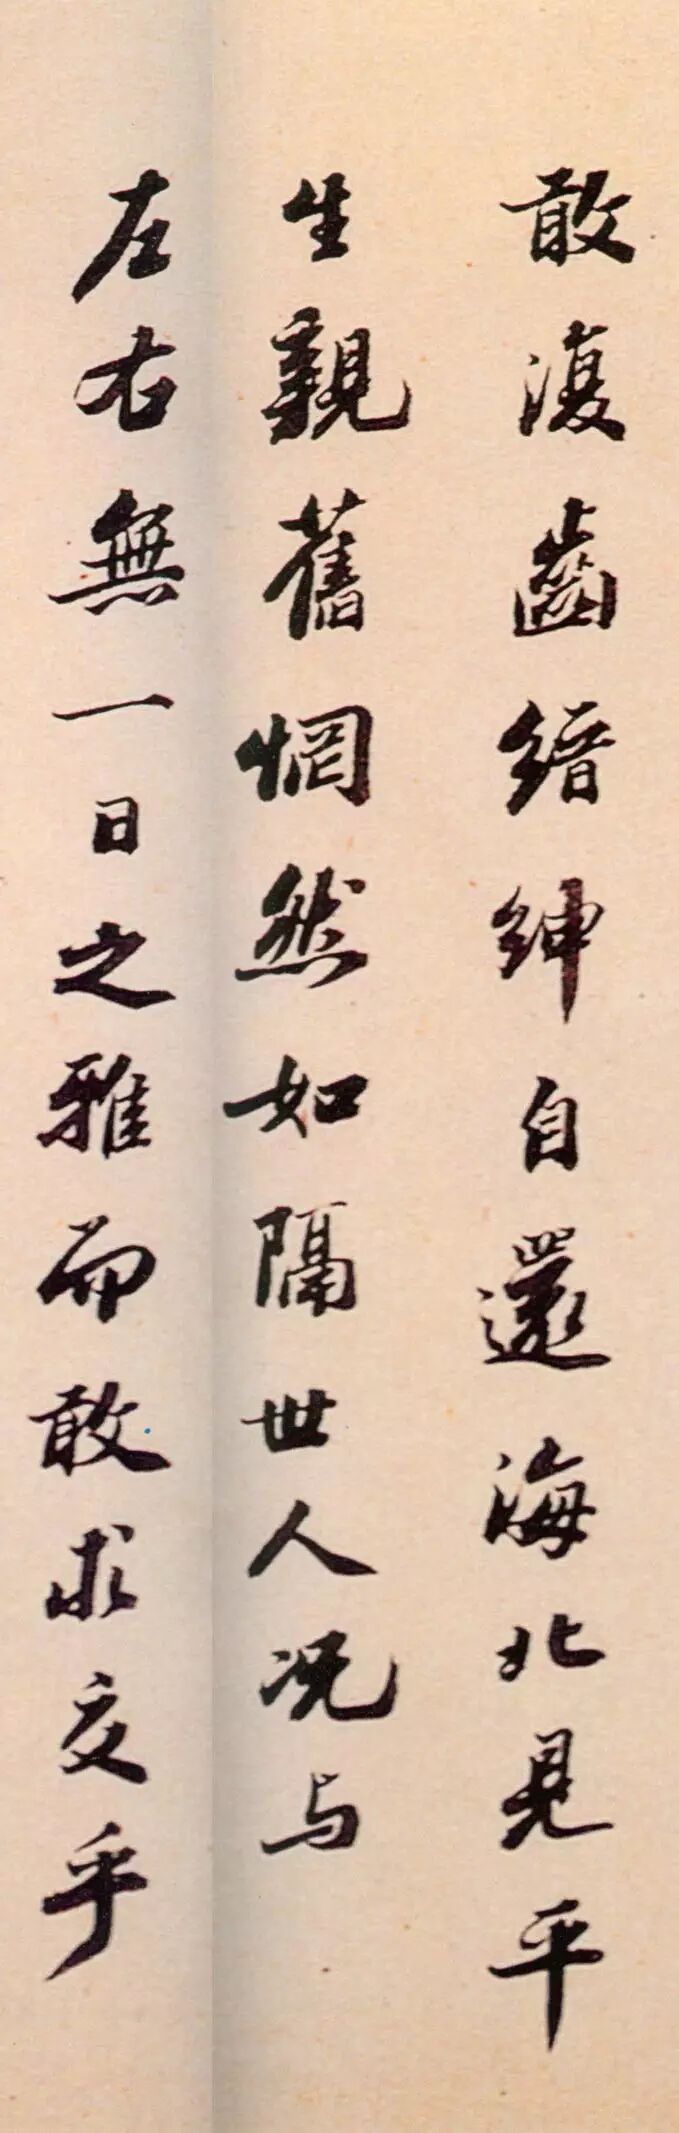 敢復齒缙紳自還海北見平
生親舊惘然如隔世人况与
左右無一日之雅而敢求交乎